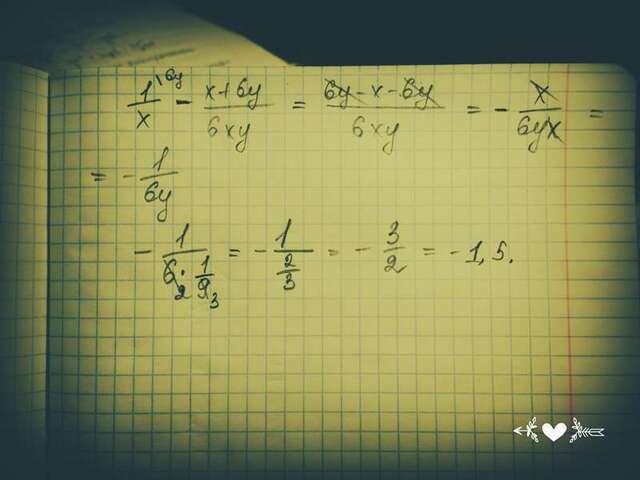 1/x \6y - (x+6y)/6xy = (6y-x-6y)/6xy = - x/6yx =
= - 1/6y
- 1/(6·1/9) = - 1/(2/3) = - 3/2 = -1,5.